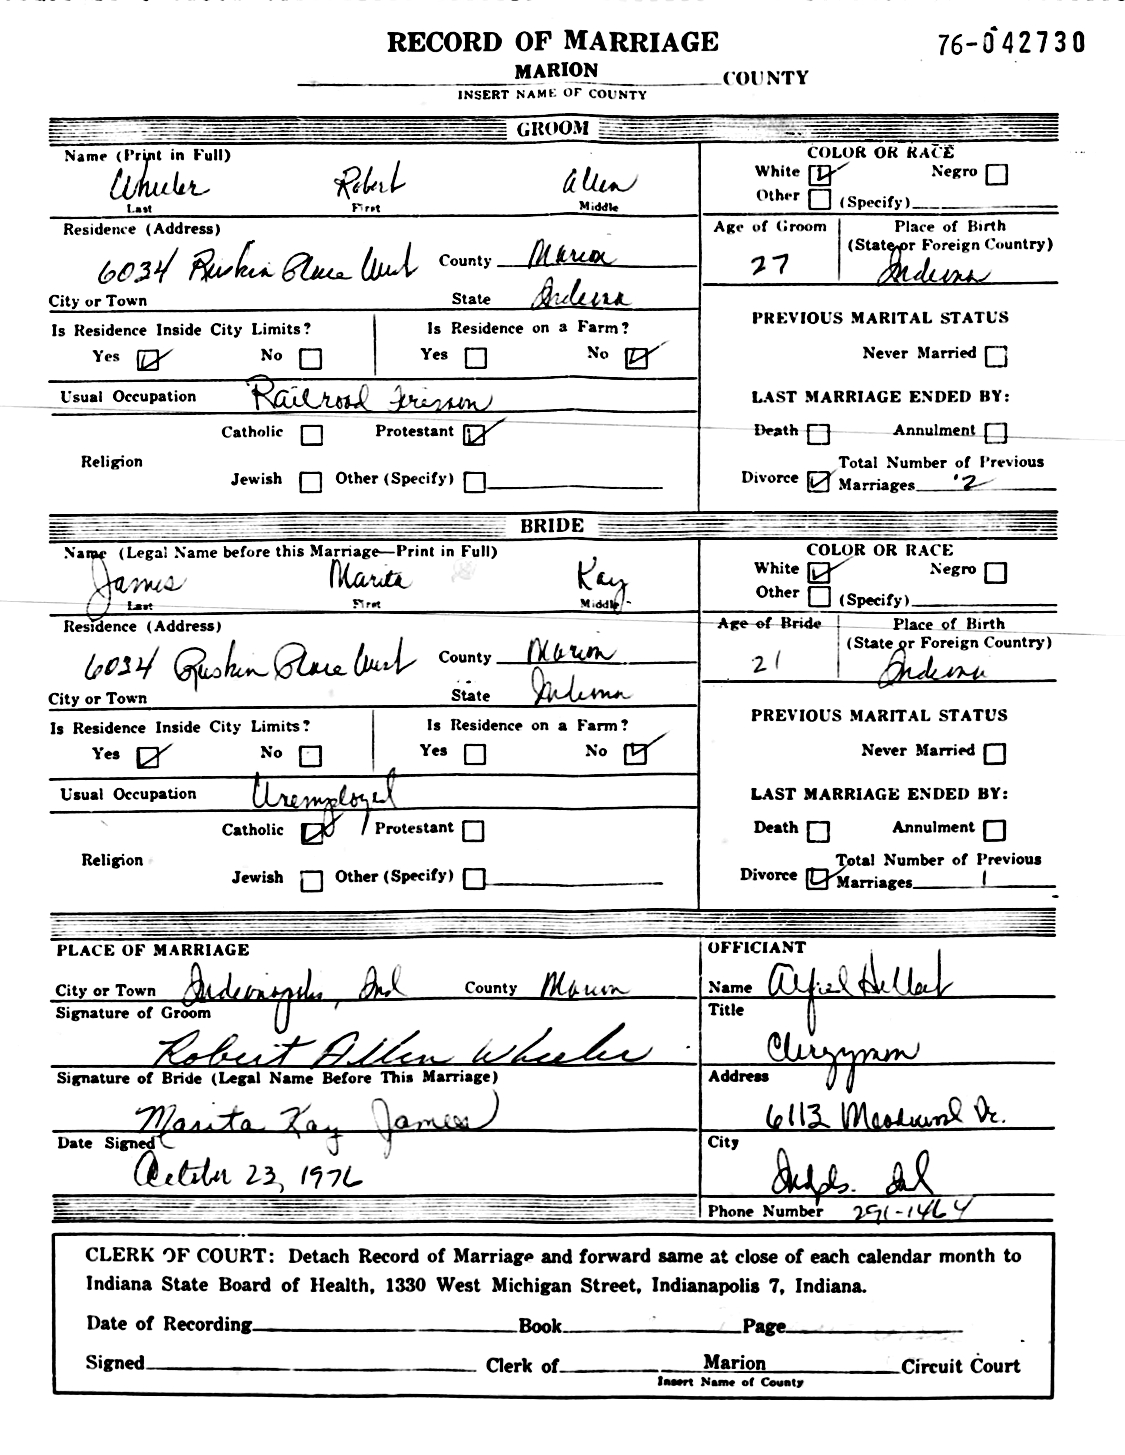 RECORD OF MARRIAGE
76-042730
MARION COUNTY
INSERT NAME OF COUNTY
GROOM
Name (Print in Full)
Wheeler Robert Allen
Last First Middle
COLOR OR RACE
White Negro
Other (Specify)
Residence (Address)
6034 Ruskin Place West County Marion
City or Town State Indiana
Age of Groom
27
Place of Birth
(State or Foreign Country)
Indiana
Is Residence Inside City Limits?
Yes No
Is Residence on a Farm?
Yes No
PREVIOUS MARITAL STATUS
Never Married
Usual Occupation Railroad
LAST MARRIAGE ENDED BY:
Death Annulment
Religion
Catholic Protestant
Jewish Other (Specify)
Divorce Total Number of Previous
Marriages 2
BRIDE
Name (Legal Name before this Marriage—Print in Full)
James Marita Kay
Last First Middle
COLOR OR RACE
White Negro
Other (Specify)
Residence (Address)
6034 Ruskin Place West County Marion
City or Town State Indiana
Age of Bride
21
Place of Birth
(State or Foreign Country)
Indiana
Is Residence Inside City Limits?
Yes No
Is Residence on a Farm?
Yes No
PREVIOUS MARITAL STATUS
Never Married
Usual Occupation Unemployed
LAST MARRIAGE ENDED BY:
Death Annulment
Religion
Catholic Protestant
Jewish Other (Specify)
Divorce Total Number of Previous
Marriages 1
PLACE OF MARRIAGE
City or Town Indianapolis, Ind County Marion
Signature of Groom
Robert Allen Wheeler
Signature of Bride (Legal Name Before This Marriage)
Marita Kay James
Date Signed
October 23, 1976
OFFICIANT
Name
Title
Clergyman
Address
6113 Dr.
City
Indpls. Ind
Phone Number 291-1464
CLERK OF COURT: Detach Record of Marriage and forward same at close of each calendar month to
Indiana State Board of Health, 1330 West Michigan Street, Indianapolis 7, Indiana.
Date of Recording Book Page
Signed Clerk of Marion Circuit Court
Insert Name of County